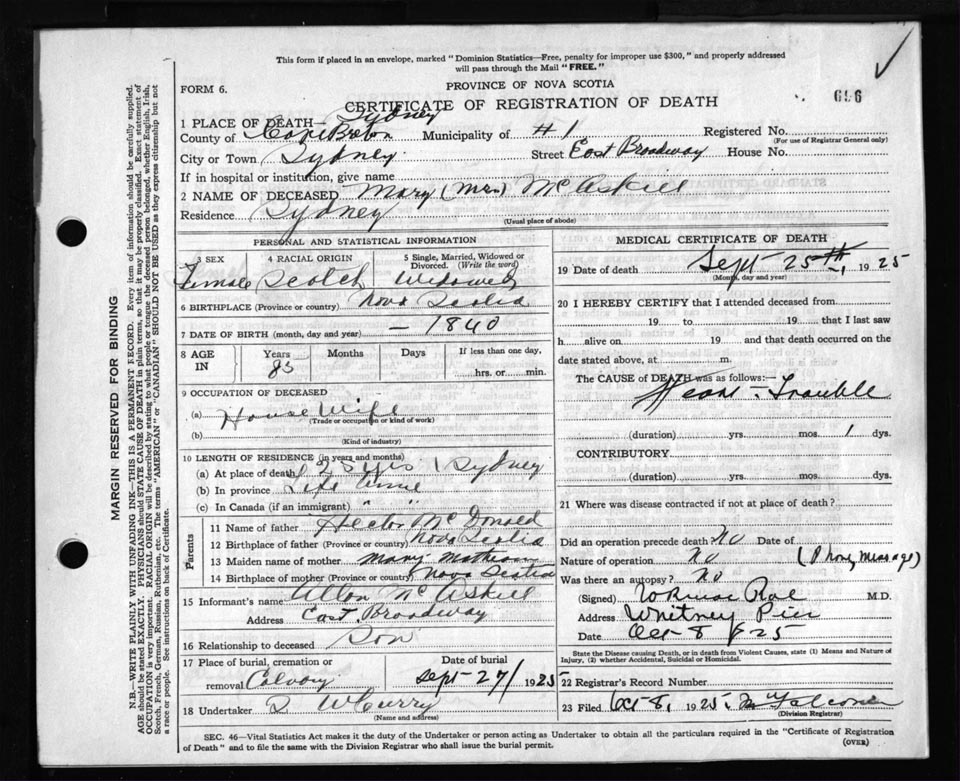 This form if placed in an envelope, marked "Dominion Statistics—Free, penalty for improper use $300," and properly addressed
will pass through the Mail "FREE."
FORM 6.
PROVINCE OF NOVA SCOTIA
CERTIFICATE OF REGISTRATION OF DEATH
696
1 PLACE OF DEATH— Sydney
County of Cape Breton Municipality of #1 Registered No.
(For use of Registrar General only)
City or Town Sydney Street East Broadway House No.
If in hospital or institution, give name
2 NAME OF DECEASED Mary (Mrs) McAskill
Residence Sydney
(Usual place of abode)
PERSONAL AND STATISTICAL INFORMATION
3 SEX Female
4 RACIAL ORIGIN Scotch
5 Single, Married, Widowed or Divorced. (Write the word) Widowed
6 BIRTHPLACE (Province or country) Nova Scotia
7 DATE OF BIRTH (month, day and year) — 1840
8 AGE IN Years 85 Months Days If less than one day, hrs. or min.
9 OCCUPATION OF DECEASED
(a) House Wife
(Trade or occupation or kind of work)
(b)
(Kind of industry)
10 LENGTH OF RESIDENCE (in years and months)
(a) At place of death 25 yrs Sydney
(b) In province Life time
(c) In Canada (if an immigrant) " "
Parents
11 Name of father Hector McDonald
12 Birthplace of father (Province or country) Nova Scotia
13 Maiden name of mother Mary Matheson
14 Birthplace of mother (Province or country) Nova Scotia
15 Informant's name Allan McAskill
Address East Broadway
16 Relationship to deceased Son
17 Place of burial, cremation or removal Calvary
Date of burial Sept 27/ 1925
18 Undertaker D W Curry
(Name and address)
MEDICAL CERTIFICATE OF DEATH
19 Date of death Sept 25th, 1925
(Month, day and year)
20 I HEREBY CERTIFY that I attended deceased from
19 to 19 that I last saw
h alive on 19 and that death occurred on the
date stated above, at m.
The CAUSE of DEATH was as follows:—
Heart Trouble
(duration) yrs. mos. 1 dys.
CONTRIBUTORY
(duration) yrs. mos. dys.
21 Where was disease contracted if not at place of death?
Did an operation precede death? No Date of
Nature of operation No (Phone Message)
Was there an autopsy? No
(Signed) M.D.
Address Whitney Pier
Date Oct 8 / 25
State the Disease causing Death, or in death from Violent Causes, state (1) Means and Nature of
Injury, (2) whether Accidental, Suicidal or Homicidal.
22 Registrar's Record Number
23 Filed Oct 8, 1925 Falconer
(Division Registrar)
SEC. 46—Vital Statistics Act makes it the duty of the Undertaker or person acting as Undertaker to obtain all the particulars required in the "Certificate of Registration
of Death" and to file the same with the Division Registrar who shall issue the burial permit.
(OVER)
MARGIN RESERVED FOR BINDING
N.B.—WRITE PLAINLY WITH UNFADING INK—THIS IS A PERMANENT RECORD. Every item of information should be carefully supplied.
AGE should be stated EXACTLY. PHYSICIANS should STATE CAUSE OF DEATH in plain terms, so that it may be properly classified. Exact statement of
OCCUPATION is very important. RACIAL ORIGIN will be described by stating to what people or tongue the deceased person belonged, whether English, Irish,
Scotch, French, German, Russian, Ruthenian, etc. The terms "AMERICAN" or "CANADIAN" SHOULD NOT BE USED as they express citizenship but not
a race or people. See instructions on back of Certificate.